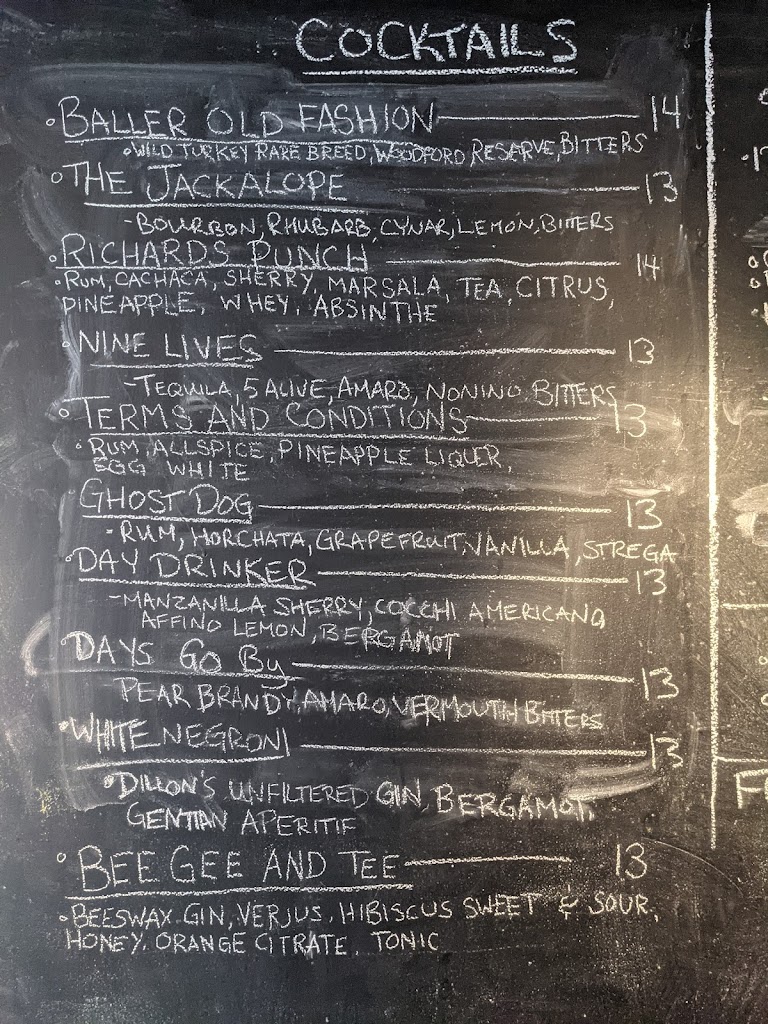 COCKTAILS
• BALLER OLD FASHION 14
• WILD TURKEY RARE BREED, WOODFORD RESERVE, BITTERS
• THE JACKALOPE 13
- BOURBON, RHUBARB, CYNAR, LEMON, BITTERS
• RICHARDS PUNCH 14
• RUM, CACHACA, SHERRY, MARSALA, TEA, CITRUS,
PINEAPPLE, WHEY, ABSINTHE
• NINE LIVES 13
- TEQUILA, 5 ALIVE, AMARO, NONINO BITTERS
• TERMS AND CONDITIONS 13
• RUM, ALLSPICE, PINEAPPLE LIQUER,
EGG WHITE
GHOST DOG 13
- RUM, HORCHATA, GRAPEFRUIT, VANILLA, STREGA
• DAY DRINKER 13
- MANZANILLA SHERRY, COCCHI AMERICANO,
AFFINO LEMON, BERGAMOT
• DAYS GO BY 13
- PEAR BRANDY, AMARO, VERMOUTH BITTERS
• WHITE NEGRONI 13
• DILLON'S UNFILTERED GIN, BERGAMOT,
GENTIAN APERITIF
• BEE GEE AND TEE 13
• BEESWAX GIN, VERJUS, HIBISCUS SWEET & SOUR,
HONEY, ORANGE CITRATE, TONIC